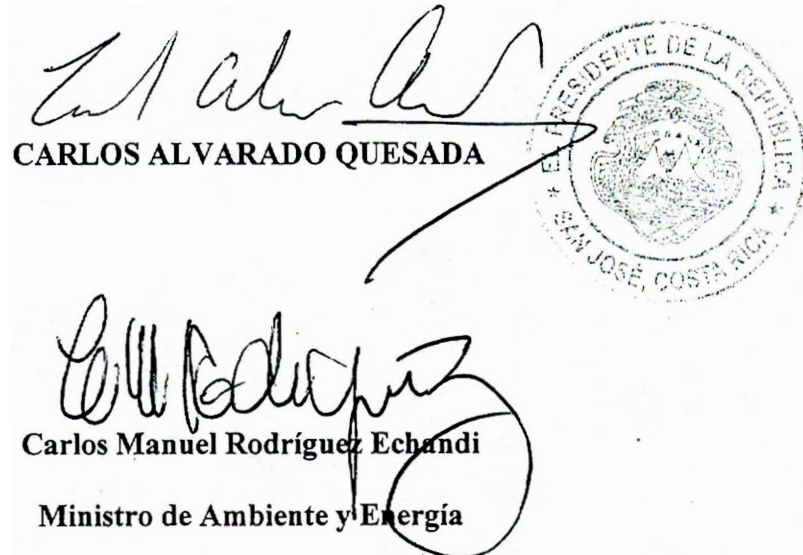 CARLOS ALVARADO QUESADA
* EL PRESIDENTE DE LA REPUBLICA *
SAN JOSÉ, COSTA RICA
Carlos Manuel Rodríguez Echandi
Ministro de Ambiente y Energía